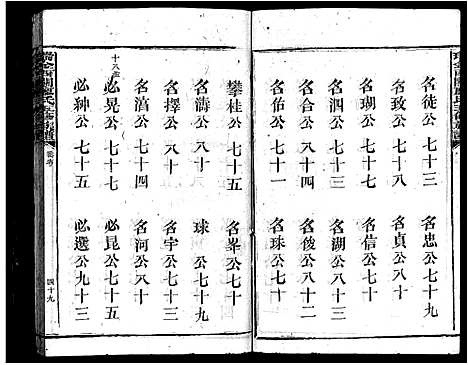 名徒公七十三
名忠公七十三
名致公七十八
名貞公七十
名瑚公七十
名信公七十
名泗公七十三
名湖公八十三
名合公八十四
名俊公八十二
名伯公八十一
名珠公七十
攀桂公七十五
名峯公七十
名濤公八十
球 七十九
名擇公八十
名宇公七十三
名滈公七十四
名河公八十
十八世
必晃公七十七
必昆公七十五
必紳公七十五
必選公九十三
四十九